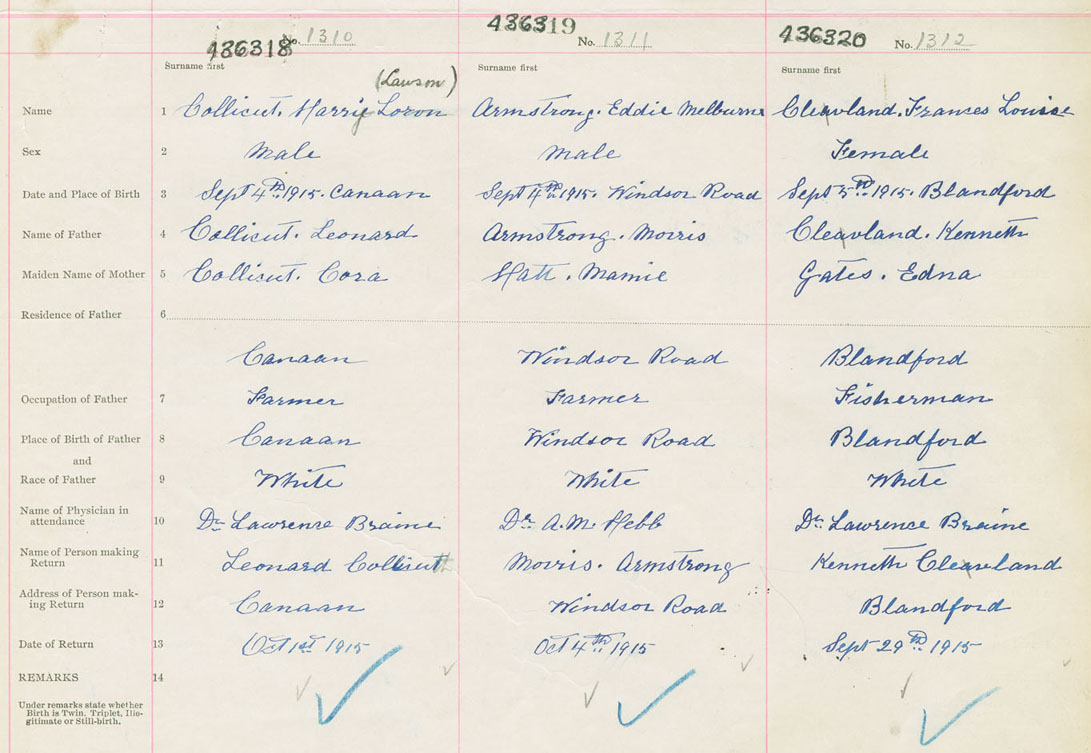 436318 No. 1310 436319 No. 1311 436320 No. 1312
Surname first Surname first Surname first
(Lawson)
Name 1 Collicut. Harry Loron Armstrong. Eddie Melburne Cleavland. Frances Louise
Sex 2 Male Male Female
Date and Place of Birth 3 Sept 4th 1915. Canaan Sept 4th 1915. Windsor Road Sept 5th 1915. Blandford
Name of Father 4 Collicut. Leonard Armstrong. Morris Cleavland. Kenneth
Maiden Name of Mother 5 Collicut. Cora Hatt. Mamie Gates. Edna
Residence of Father 6
Canaan Windsor Road Blandford
Occupation of Father 7 Farmer Farmer Fisherman
Place of Birth of Father 8 Canaan Windsor Road Blandford
and
Race of Father 9 White White White
Name of Physician in
attendance 10 Dr Lawrence Braine Dr. A. M. Hebb Dr. Lawrence Braine
Name of Person making
Return 11 Leonard Collicutt Morris. Armstrong Kenneth Cleavland
Address of Person mak-
ing Return 12 Canaan Windsor Road Blandford
Date of Return 13 Oct 1st 1915 Oct 4th 1915 Sept 29th 1915
REMARKS 14
Under remarks state whether
Birth is Twin, Triplet, Ille-
gitimate or Still-birth.